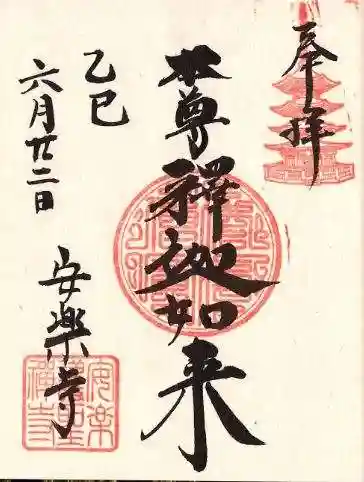 奉拝
本尊釋迦如来
乙巳
六月廿二日
安楽寺